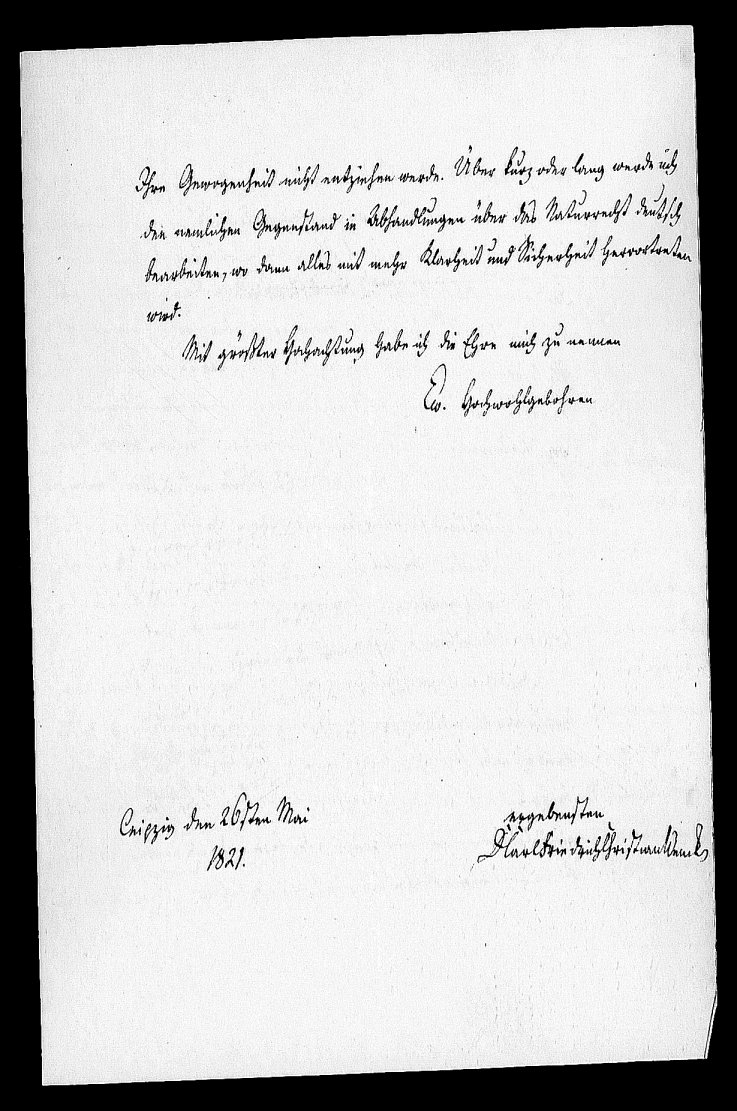 Ihre Gewogenheit nicht entziehen werde. Über kurz oder lang werde ich
den nemlichen Gegenstand in Abhandlungen über das Naturrecht deutsch
bearbeiten, wo dann alles mit mehr Klarheit und Sicherheit hervortreten
wird.
Mit größter Hochachtung habe ich die Ehre mich zu nennen
Ew. Hochwohlgebohren
Leipzig den 26sten Mai
1821.
ergebensten
D Carl Friedrich Christian Wenck